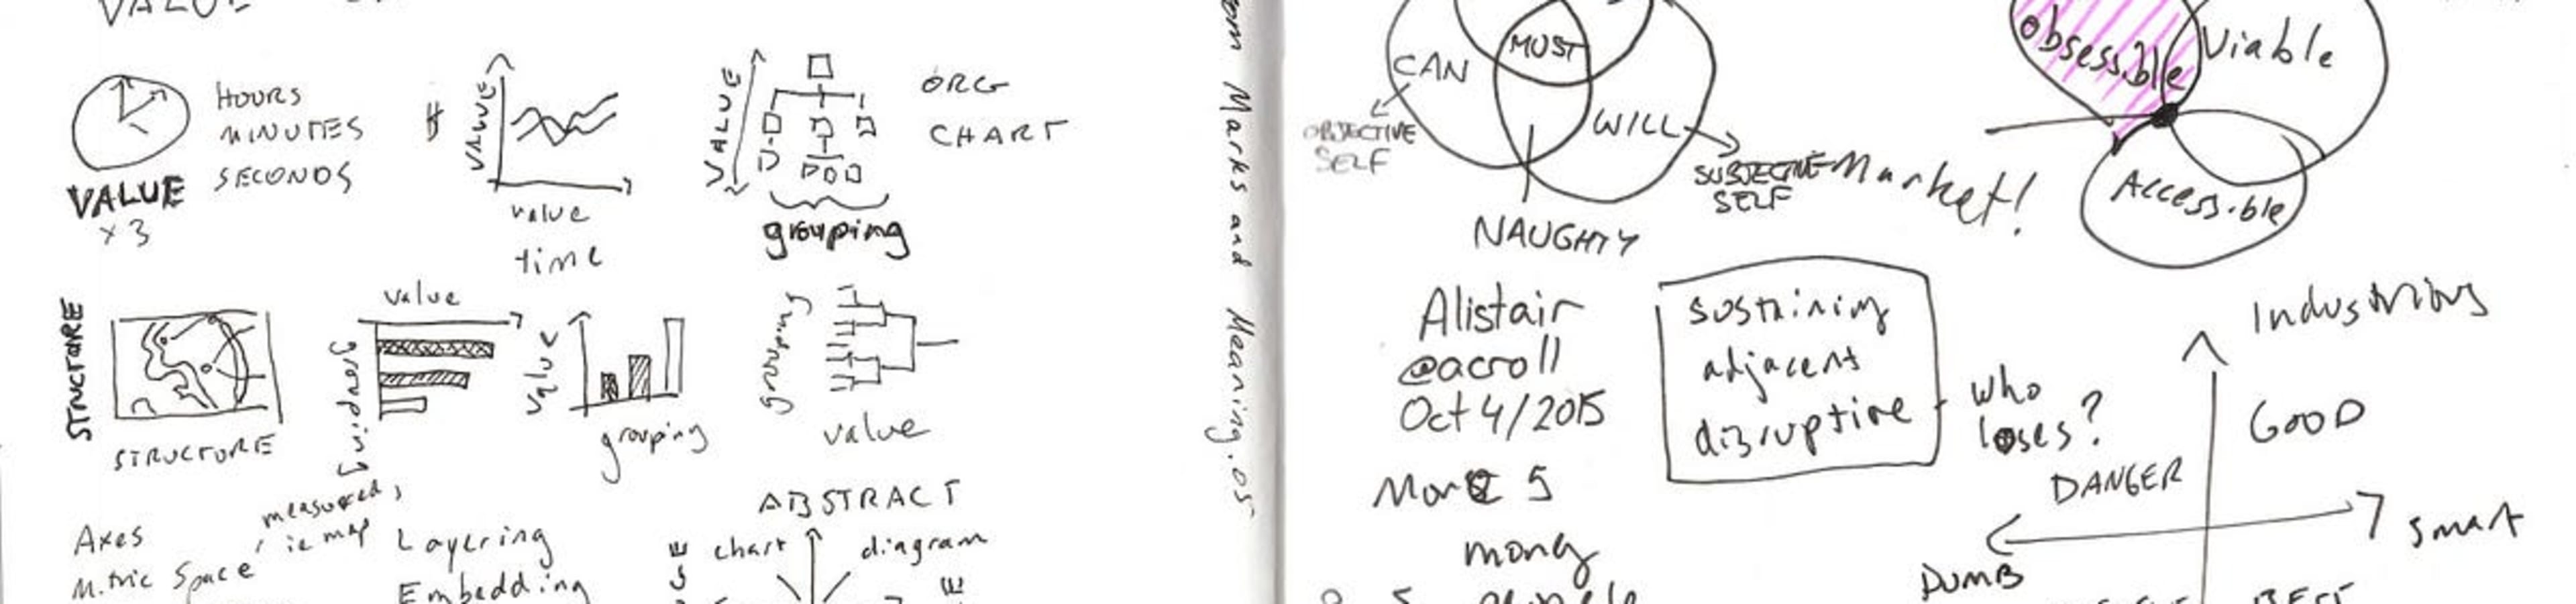 VALUE
HOURS
MINUTES
SECONDS
VALUE
x 3
$
VALUE
value
time
VALUE
grouping
ORG
CHART
STRUCTURE
STRUCTURE
value
grouping
value
grouping
grouping
value
Axes
Metric Space
measured,
ie map
Layering
Embedding
ABSTRACT
chart
diagram
om Marks and Meaning.05
CAN
MUST
WILL
OBJECTIVE
SELF
SUBJECTIVE
SELF
NAUGHTY
obsessible
Viable
Accessible
Market!
Alistair
@acroll
Oct 4/2015
sustaining
adjacent
disruptive
who
loses?
More 5
money
Industrious
GOOD
DANGER
Smart
DUMB